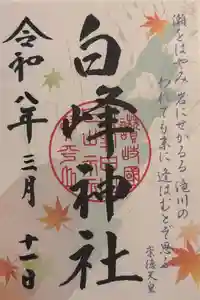 瀬をはやみ 岩にせかるる 滝川の
われても末に 逢はむとぞ思ふ
崇徳天皇
白峰神社
讃岐國
令和八年三月十一日